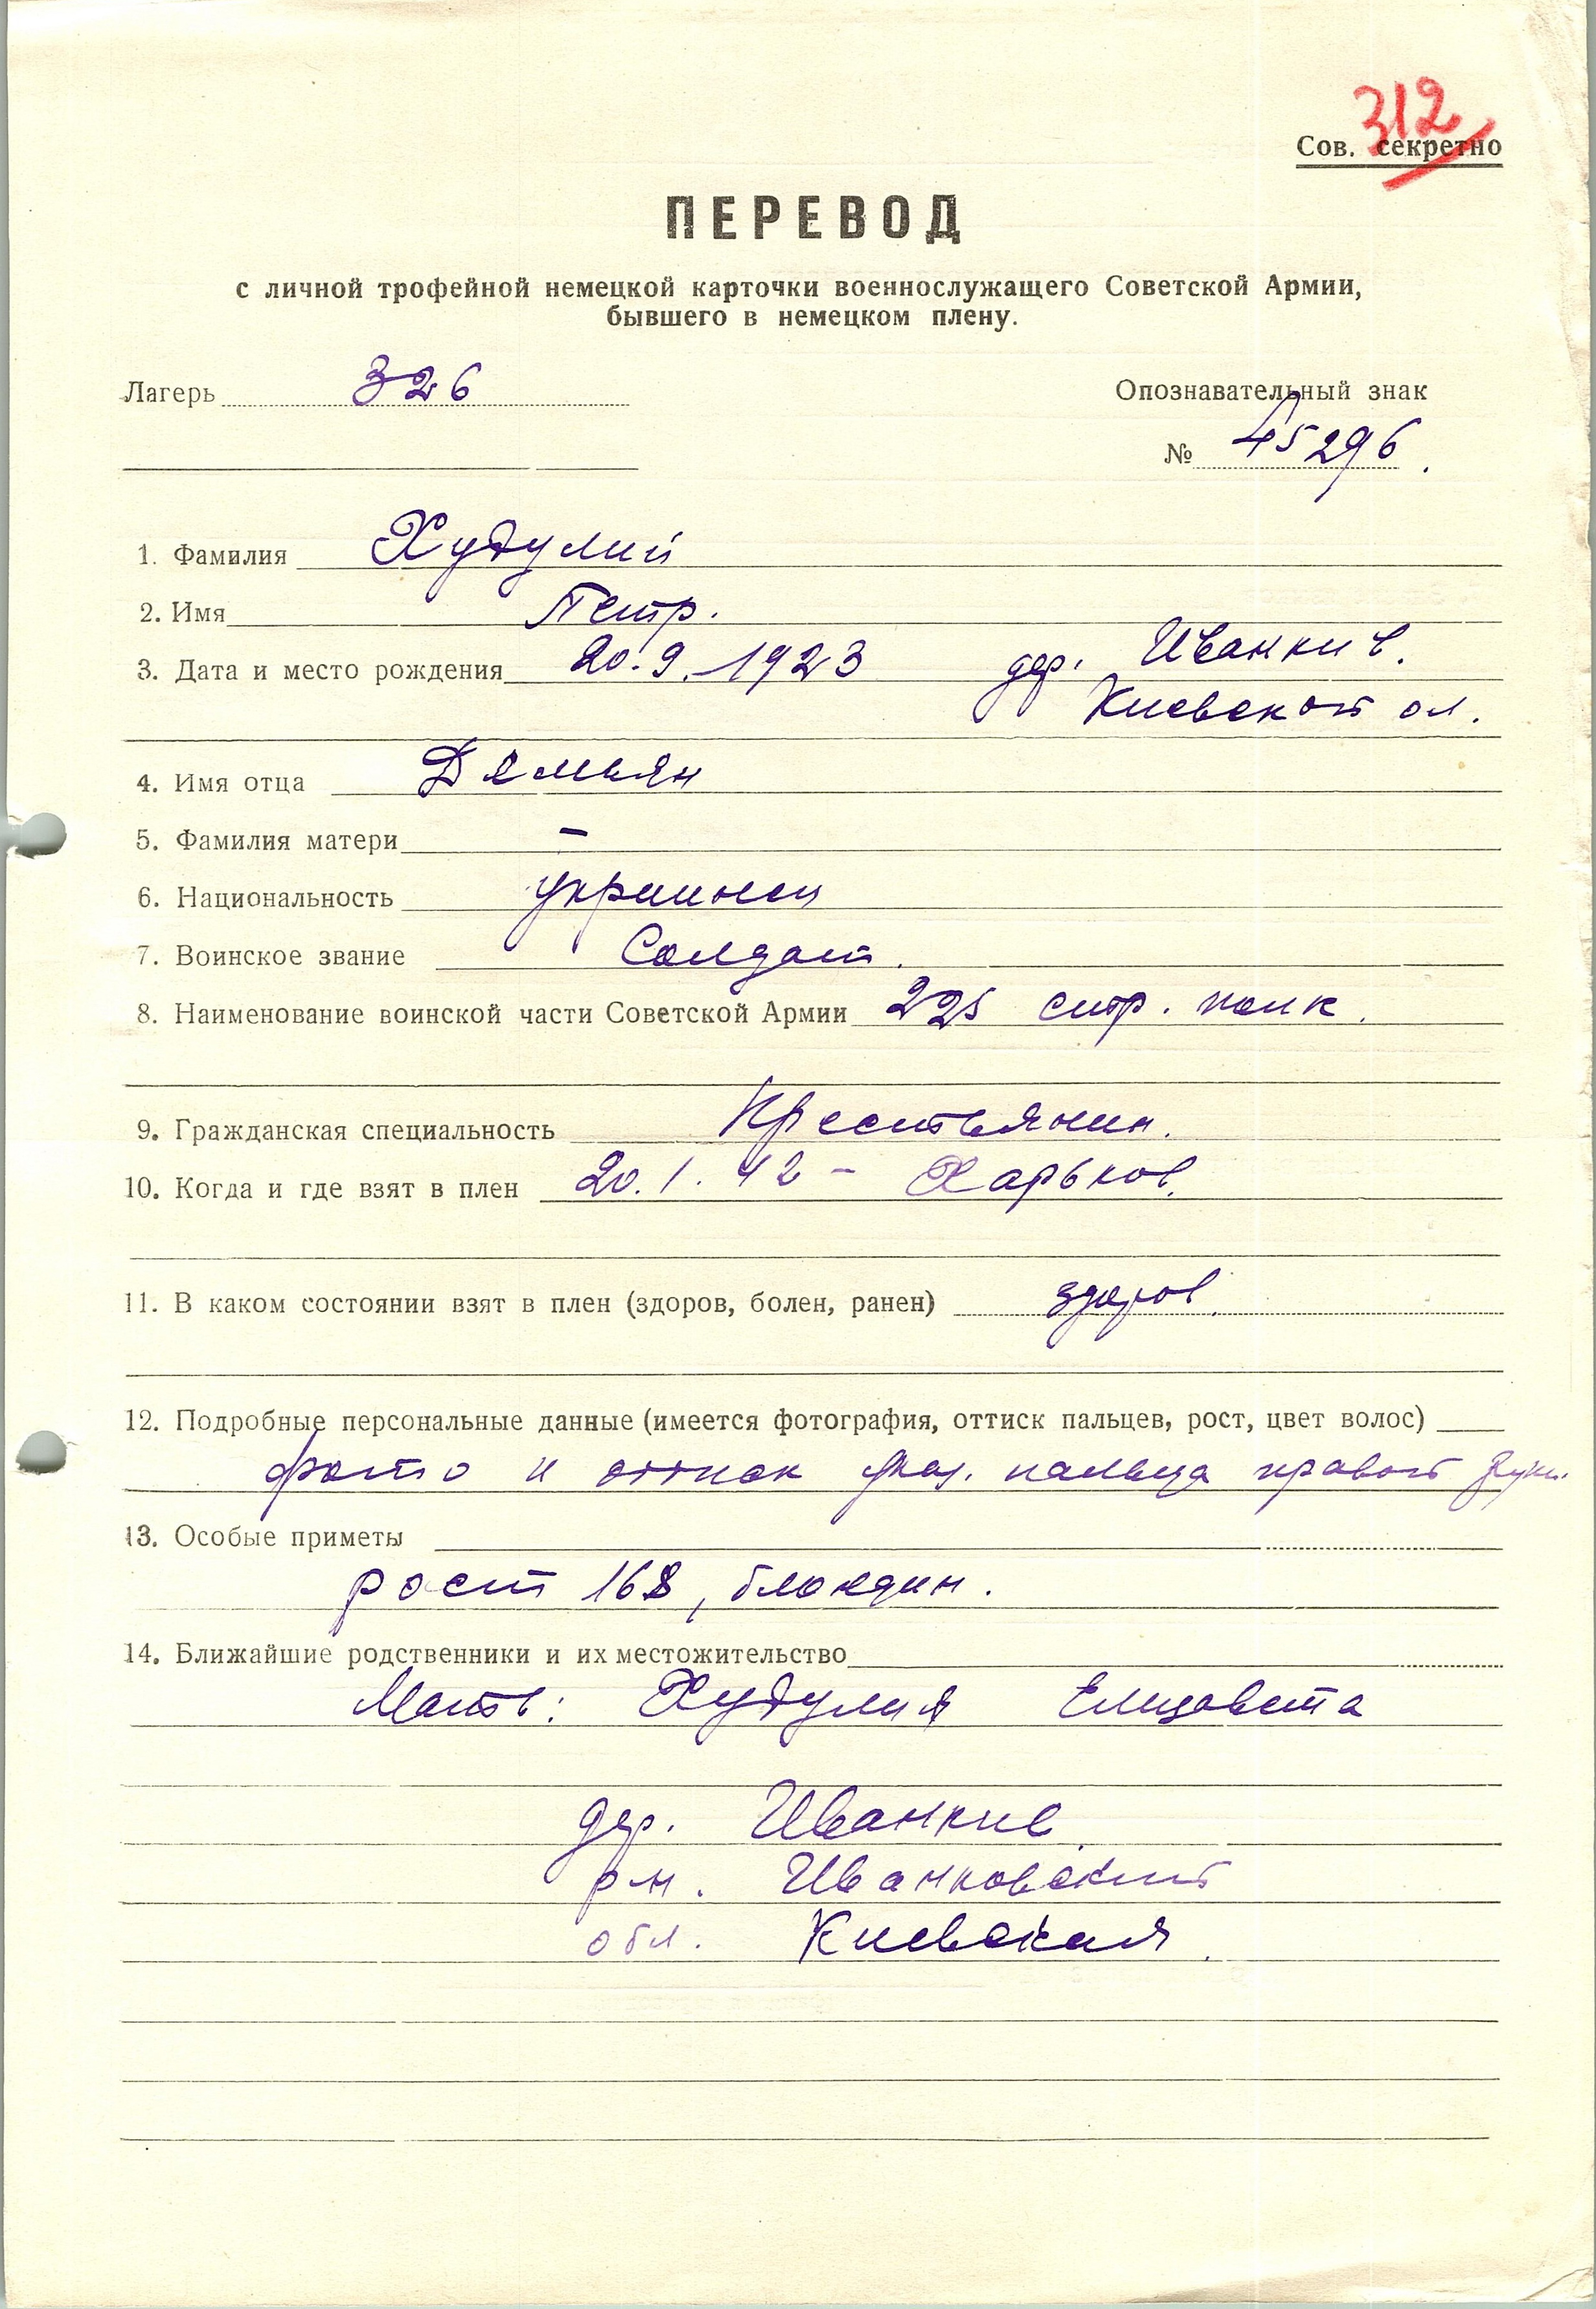 312
Сов. секретно
ПЕРЕВОД
с личной трофейной немецкой карточки военнослужащего Советской Армии,
бывшего в немецком плену.
Лагерь 326
Опознавательный знак
№ 45296.
1. Фамилия Худулий
2. Имя Петр.
3. Дата и место рождения 20.9.1923 дер. Иванкив.
Киевской ол.
4. Имя отца Дямьян
5. Фамилия матери –
6. Национальность украинец
7. Воинское звание Солдат.
8. Наименование воинской части Советской Армии 225 стр. полк.
9. Гражданская специальность Крестьянин.
10. Когда и где взят в плен 20.1.42 – Харьков.
11. В каком состоянии взят в плен (здоров, болен, ранен) здоров.
12. Подробные персональные данные (имеется фотография, оттиск пальцев, рост, цвет волос)
фото и оттиск указ. пальца правой руки.
13. Особые приметы
рост 168, блондин.
14. Ближайшие родственники и их местожительство
Мать: Худулия Елизавета
дер. Иванкив
р-н. Иванковский
обл. Киевская.